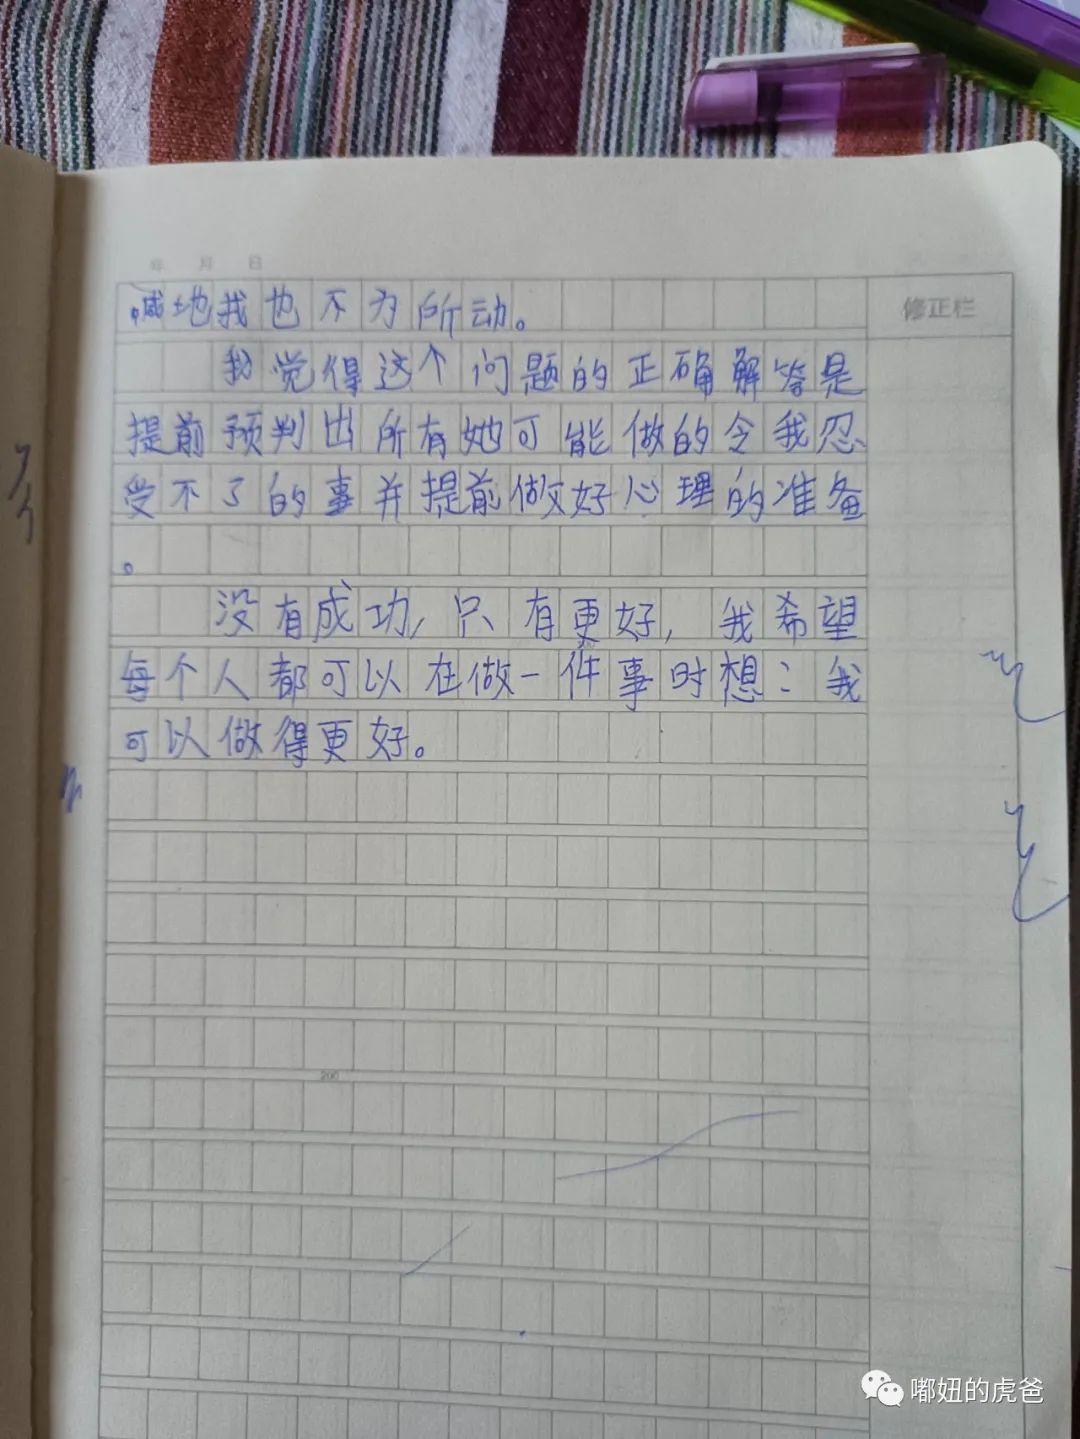 年 月 日
修正栏
喊地我也不为所动。
我觉得这个问题的正确解答是
提前预判出所有她可能做的令我忍
受不了的事并提前做好心理的准备
。
没有成功,只有更好,我希望
每个人都可以在做一件事时想:我
可以做得更好。
200
嘟妞的虎爸